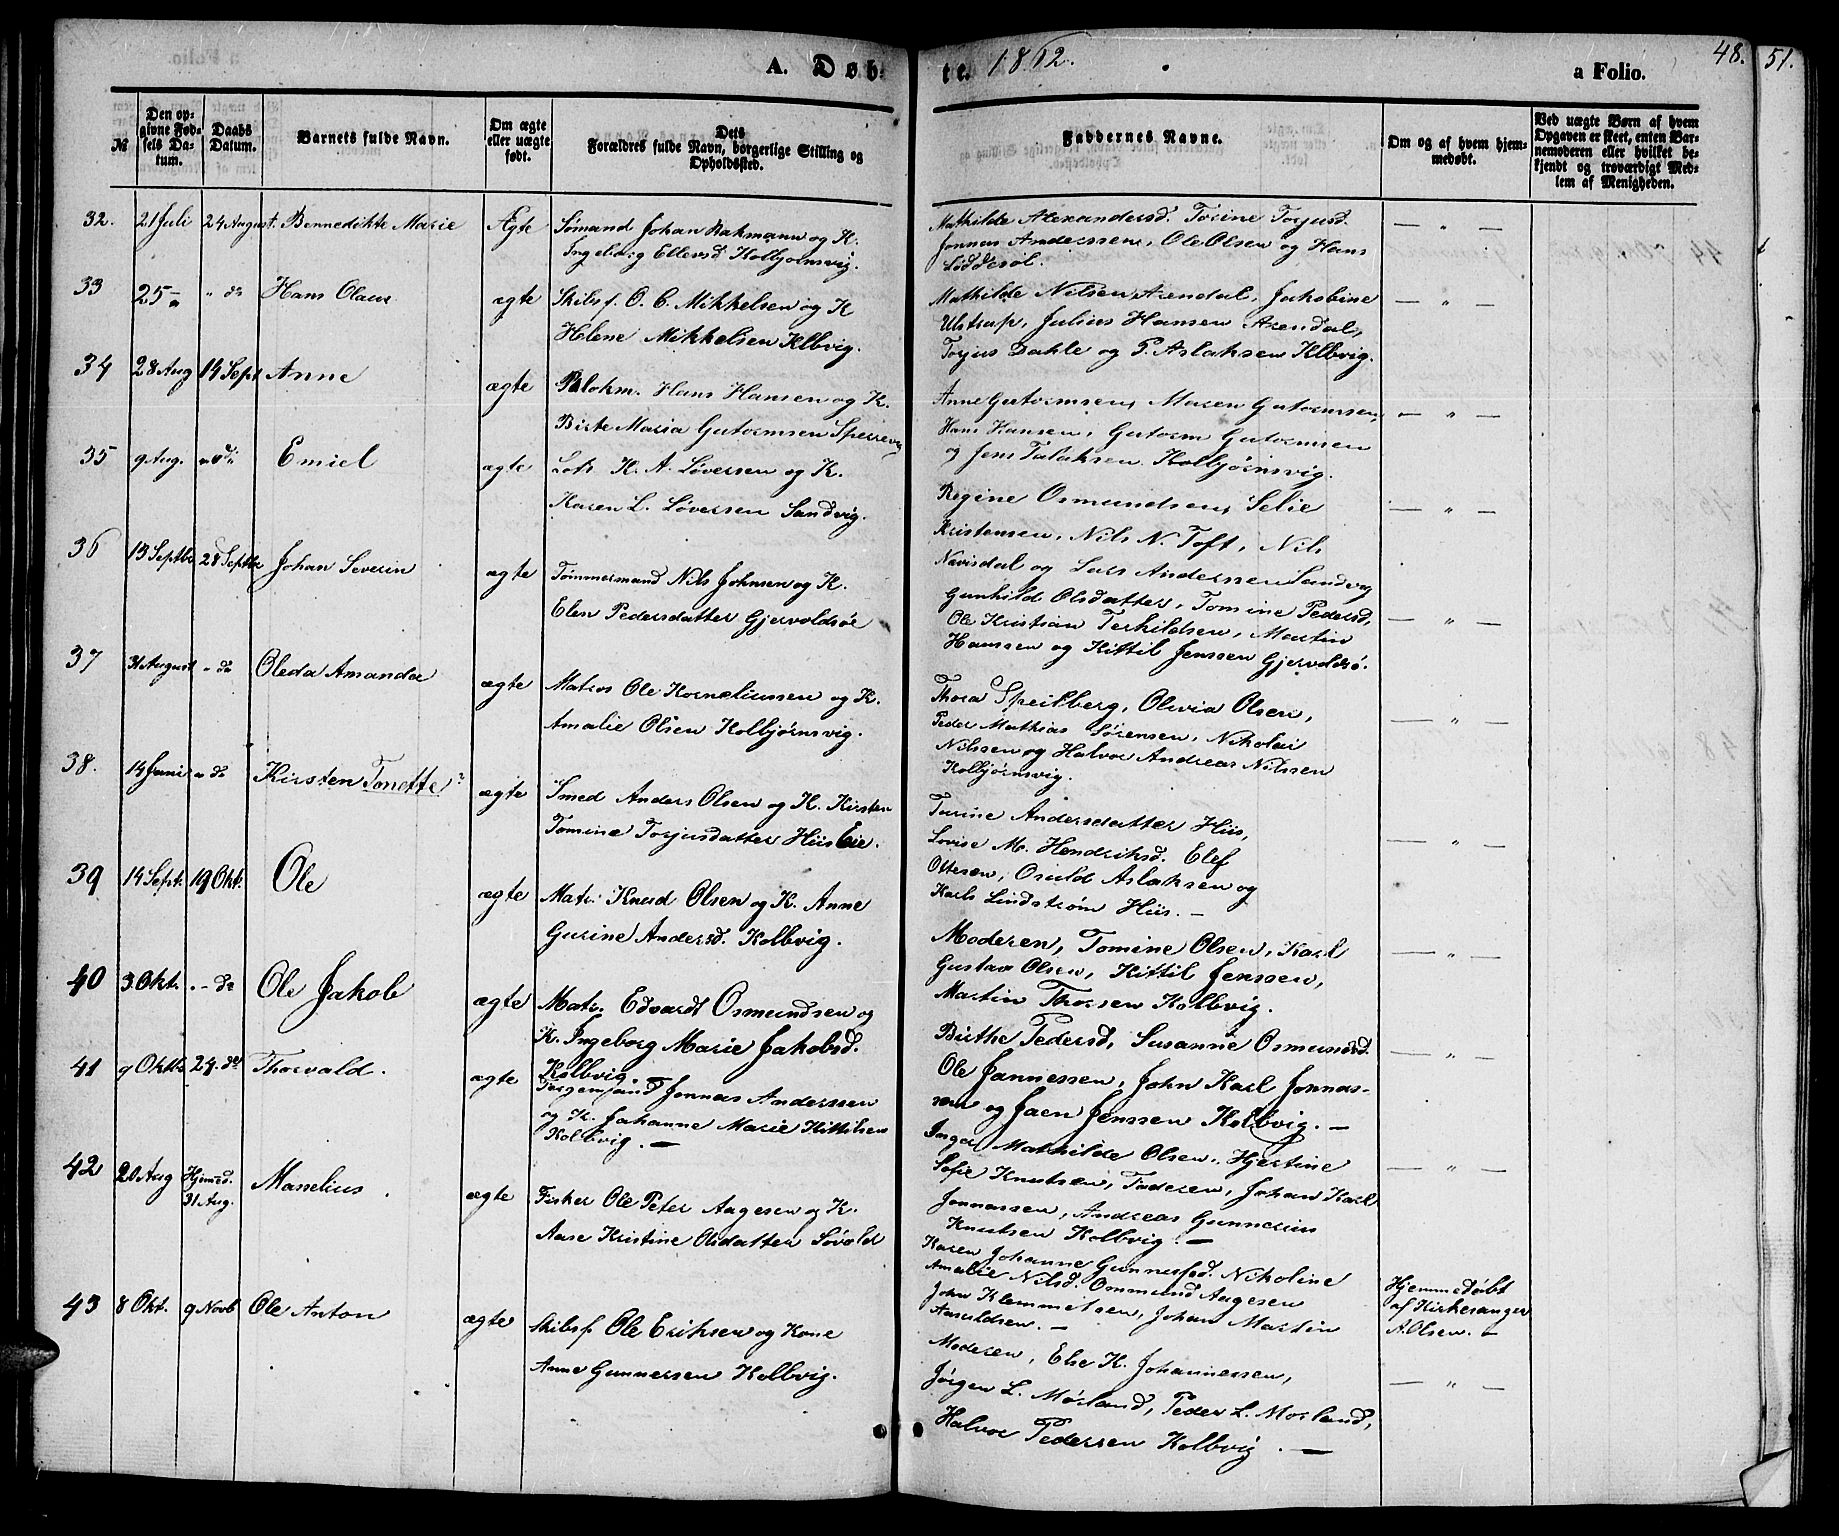 A. Døb-
te. 1862.
a Folio.
48.
51.
№
Den op-
givne Fød-
sels Da-
tum.
Daabs
Datum.
Barnets fulde Navn.
Om ægte
eller uægte
født.
Dets
Forældres fulde Navn, borgerlige Stilling og
Opholdssted.
Faddernes Navne.
Om og af hvem hjem-
medøbt.
Ved uægte Børn af hvem
Opgaven er skeet, enten Bar-
nemoderen eller hvilket be-
kjendt og troværdigt Med-
lem af Menigheden.
32. 21 Juli 24 August. Bennedikte Marie Ægte Sømand Johan Rakmann og K.
Ingeborg Ellevsd Kolbjørnsvig.
Mathilde Alexandersd. Torine Torjusd.
Jonnas Anderssen, Ole Olsen og Hans
Løddesøl.
— " —
33 25 — " " do Hans Olaus ægte Skibsf. O. C. Mikkelsen og K
Helene Mikkelsen Klbvig.
Mathilde Nilsen Arendal, Jakobine
Ulstrup, Julius Hansen Arendal,
Torjus Dahle og P. Aslaksen Klbvig.
— " —
34 28 Aug 14 Sept Anne ægte Blokm. Hans Hansen og K.
Birte Maria Gutormsen Sperrevig
Anne Gutormsen, Maren Gutormsen,
Hans Hansen, Gutorm Gutormsen
og Jens Talaksen Kolbjørnsvig.
— " —
35 9 Aug. " do Emiel ægte Lots H. A. Løversen og K.
Karen L. Løversen Sandvig.
Regine Osmundsen, Selie
Kristensen, Nils N. Toft, Nils
Navisdal og Lars Andersen Sandvig
— " —
36 13 Septbr 28 Septbr Johan Severin ægte Tømmermand Nils Johnsen og K.
Elen Pedersdatter Gjervoldsøe
Gunhild Olsdatter, Tomine Pedersd,
Ole Kristian Terkildsen, Martin
Hanssen og Kittil Jenssen Gjervoldsø.
— " —
37 31 August " do Oleda Amanda ægte Matros Ole Korneliussen og K.
Amalie Olsen Kolbjørnsvig.
Thora Speilberg, Olivia Olsen,
Peder Mathias Sørensen, Nikolai
Nilssen og Halvor Andreas Nilssen
Kolbjørnsvig.
— " —
38. 14 Juni " do Kirsten Tonette? ægte Smed Anders Olsen og K. Kirsten
Tomine Torjusdatter Hiis Eie.
Turine Andersdatter Hiis,
Lovise M. Hendriksd. Elef
Ottesen, Osuld Aslaksen og
Karls Lindstrøm Hiis. —
— " —
39 14 Sept. 19 Okt. Ole ægte Matr. Knud Olsen og K. Anne
Gurine Andersd. Kolbvig.
Moderen, Tomine Olsen, Karl
Gustav Olsen, Kittil Jenssen,
Martin Thorsen Kolbvig.
— " —
40 3 Okt. " do Ole Jakob ægte Matr. Edvardt Osmundsen og
K. Ingeborg Marie Jakobsd.
Kolbvig.
Birthe Pedersd, Susanne Osmundsd.
Ole Jannessen, John Karl Jonnas-
sen og Jaen Jenssen Kolbvig. —
— " —
41 9 Oktb 24. do Thorvald. ægte Jørgensand Jonnas Anderssen
og K. Johanne Marie Kittilsen
Kolbvig. —
Inger Mathilde Olsen, Hjertine
Sofie Knutsen, Faderen, Johan Karl
Jonnassen, Andreas Gunnerius
Knutsen Kolbvig. —
— " —
42 20 Aug Hjemmed.
31 Aug. Masselius. ægte Fisker Ole Peter Aagesen og K.
Aase Kristine Olsdatter Sövold
Karen Johanne Gunnersd. Nikoline
Amalie Nilsd. Ommund Aagesen
John Klemmetsen, Johan Martin
Aaruldsen. —
Hjemmedøbt
af Kirkesanger
A. Olsen. —
43 8 Okt. 9 Novb Ole Anton ægte Skibsf Ole Eriksen og Kone
Anne Gunnersen Kolbvig.
Moderen, Else K. Johannessen,
Jørgen L. Mørland, Peder L. Mørland,
Halvor Pedersen Kolbvig. —
— " —